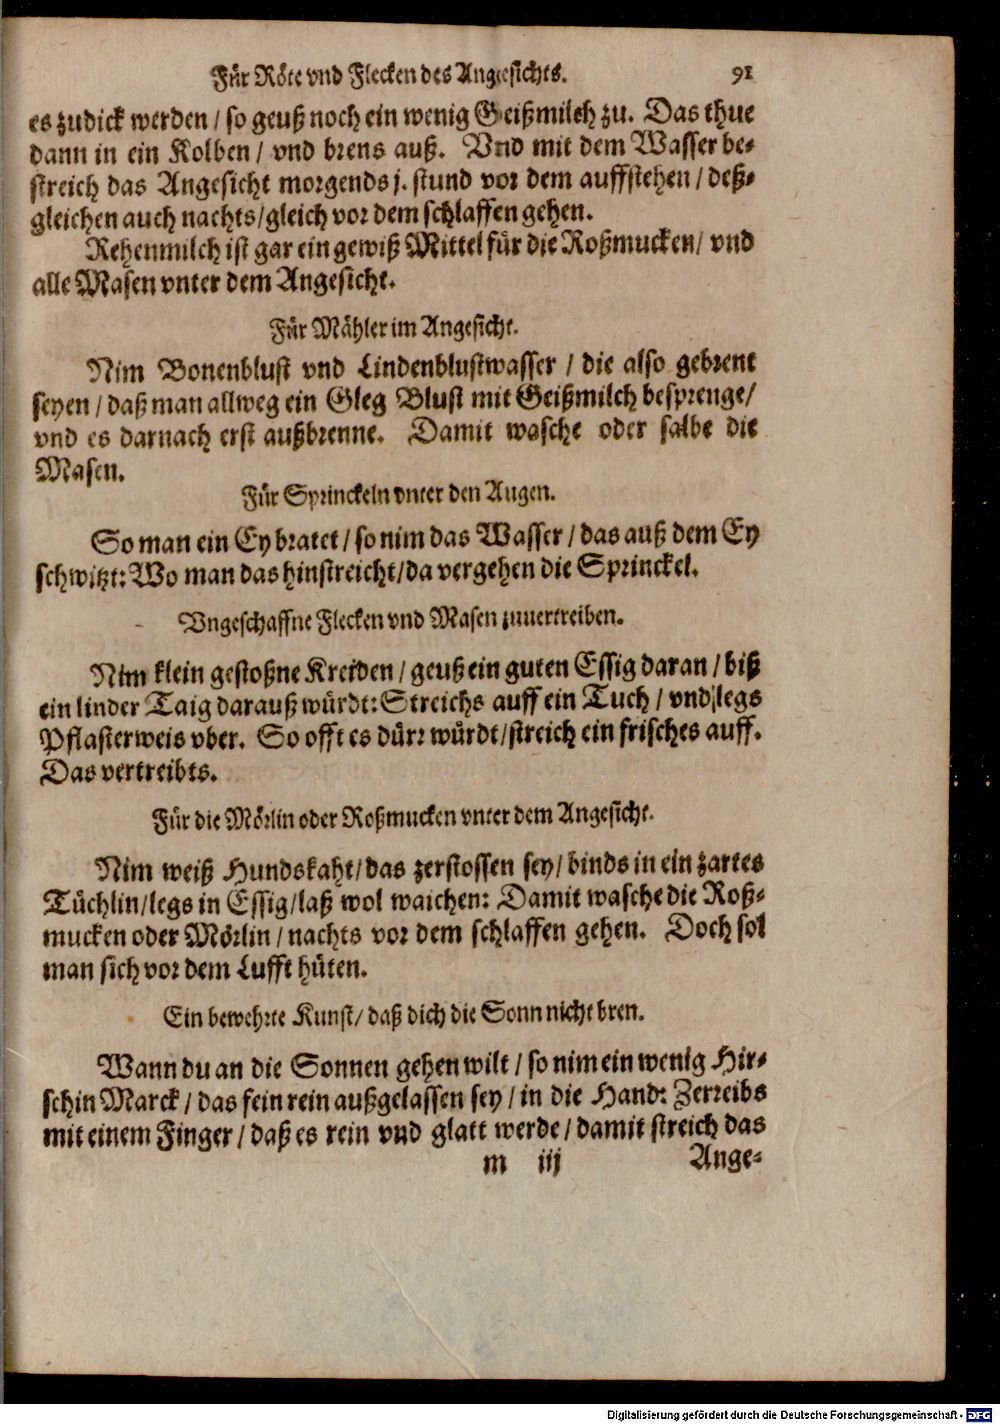 Für Röte vnd Flecken des Angesichts. 91
es zudick werden / so geuß noch ein wenig Geißmilch zu. Das thue
dann in ein Kolben / vnd brens auß. Vnd mit dem Wasser be-
streich das Angesicht morgends j. stund vor dem auffstehen / deß-
gleichen auch nachts / gleich vor dem schlaffen gehen.
Rehenmilch ist gar ein gewiß Mittel für die Roßmucken / vnd
alle Masen vnter dem Angesicht.
Für Mähler im Angesicht.
Nim Bonenblust vnd Lindenblustwasser / die also gebrent
seyen / daß man allweg ein Gleg Blust mit Geißmilch besprenge /
vnd es darnach erst außbrenne. Damit wasche oder salbe die
Masen.
Für Sprinckeln vnter den Augen.
So man ein Ey bratet / so nim das Wasser / das auß dem Ey
schwitzt: Wo man das hinstreicht / da vergehen die Sprinckel.
Vngeschaffne Flecken vnd Masen zuuertreiben.
Nim klein gestoßne Kreiden / geuß ein guten Essig daran / biß
ein linder Taig darauß würdt: Streichs auff ein Tuch / vnd legs
Pflasterweis vber. So offt es dürr würdt / streich ein frisches auff.
Das vertreibts.
Für die Mörlin oder Roßmucken vnter dem Angesicht.
Nim weiß Hundskaht / das zerstossen sey / binds in ein zartes
Tüchlin / legs in Essig / laß wol waichen: Damit wasche die Roß-
mucken oder Mörlin / nachts vor dem schlaffen gehen. Doch sol
man sich vor dem Lufft hüten.
Ein bewehrte Kunst / daß dich die Sonn nicht bren.
Wann du an die Sonnen gehen wilt / so nim ein wenig Hir-
schin Marck / das fein rein außgelassen sey / in die Hand: Zerreibs
mit einem Finger / daß es rein vnd glatt werde / damit streich das
m iij Ange-
Digitalisierung gefördert durch die Deutsche Forschungsgemeinschaft - DFG